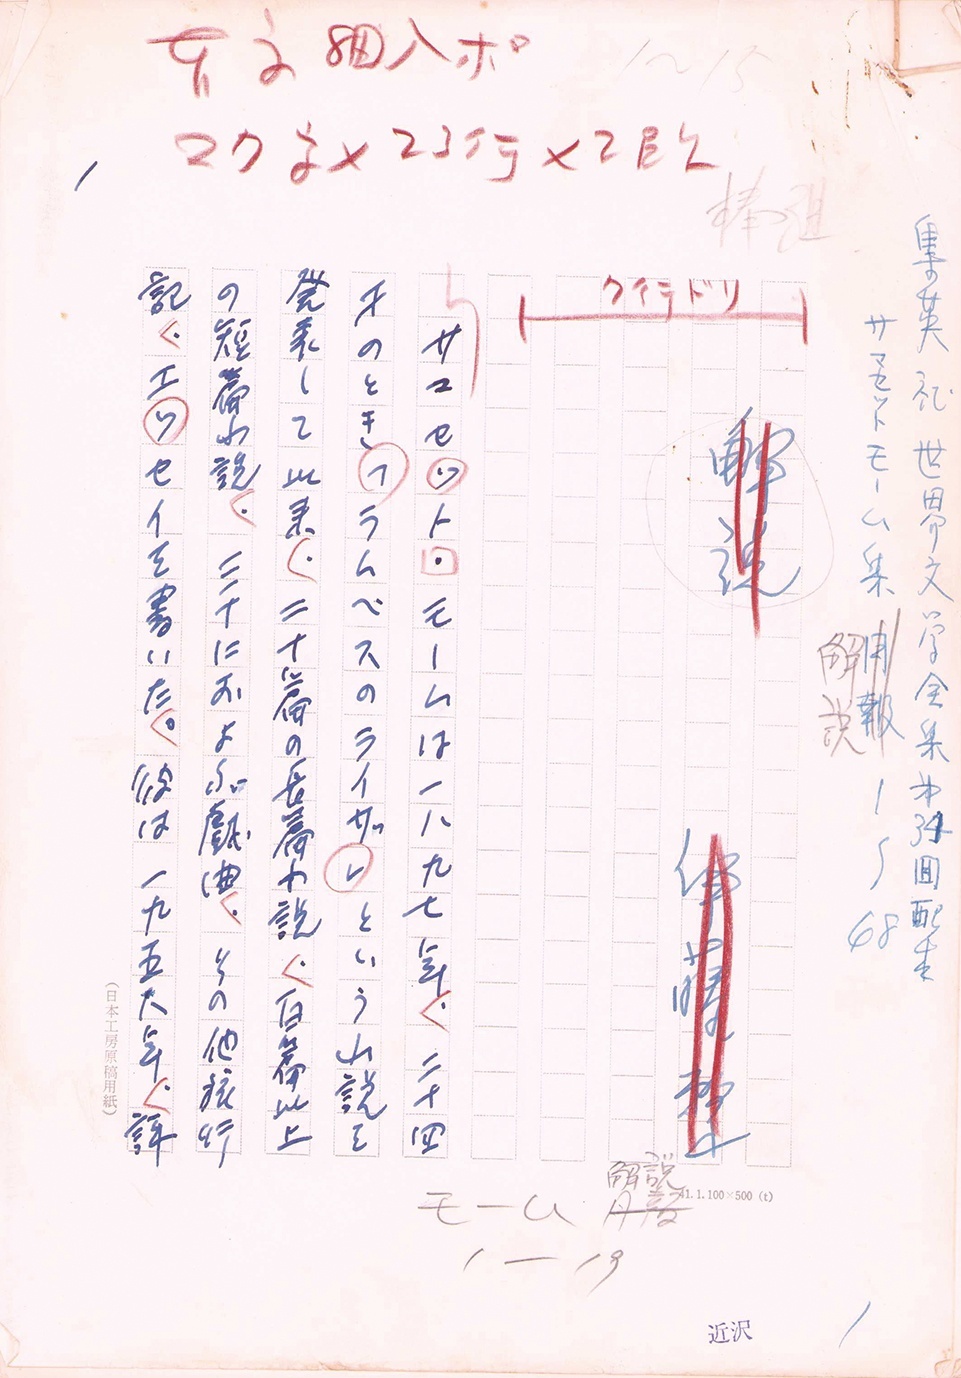 集英社 世界文学全集 才34回配本
サマセットモーム集 月報 1〜68
解説
棒組
本文8ポ
27字×23行×2段
1〜15
クイライドリ
解説
伊藤整
サマセット・モームは一八九七年、二十四
才のときラムベスのライザという小説を
発表して以来、二十篇の長篇小説、百篇以上
の短篇小説、三十におよぶ戯曲、その他旅行
記、エッセイを書いた。彼は一九五八年、評
(日本工房原稿用紙)
41.1.100×500 (t)
モーム 解説
月報
1—19
近沢
1